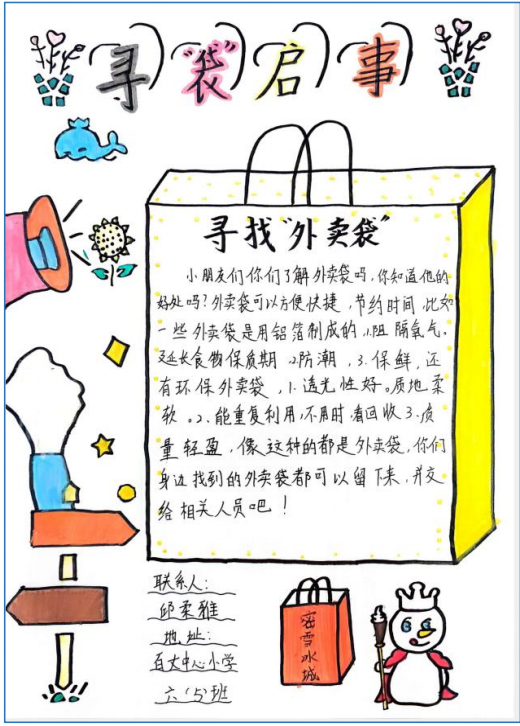 寻“袋”启事
寻找“外卖袋”
小朋友们你们了解外卖袋吗，你知道他的
好处吗？外卖袋可以方便快捷，节约时间，比如
一些外卖袋是用铝箔制成的，1.阻隔氧气，
延长食物保质期 2.防潮，3.保鲜，还
有环保外卖袋，1.透光性好。质地柔
软。2、能重复利用，不用时，看回收 3.质
量轻盈，像这种的都是外卖袋，你们
身边找到的外卖袋都可以留下来，并交
给相关人员吧！
联系人：
邱柔雅
地址：
百丈中心小学
六（5）班
密雪冰城